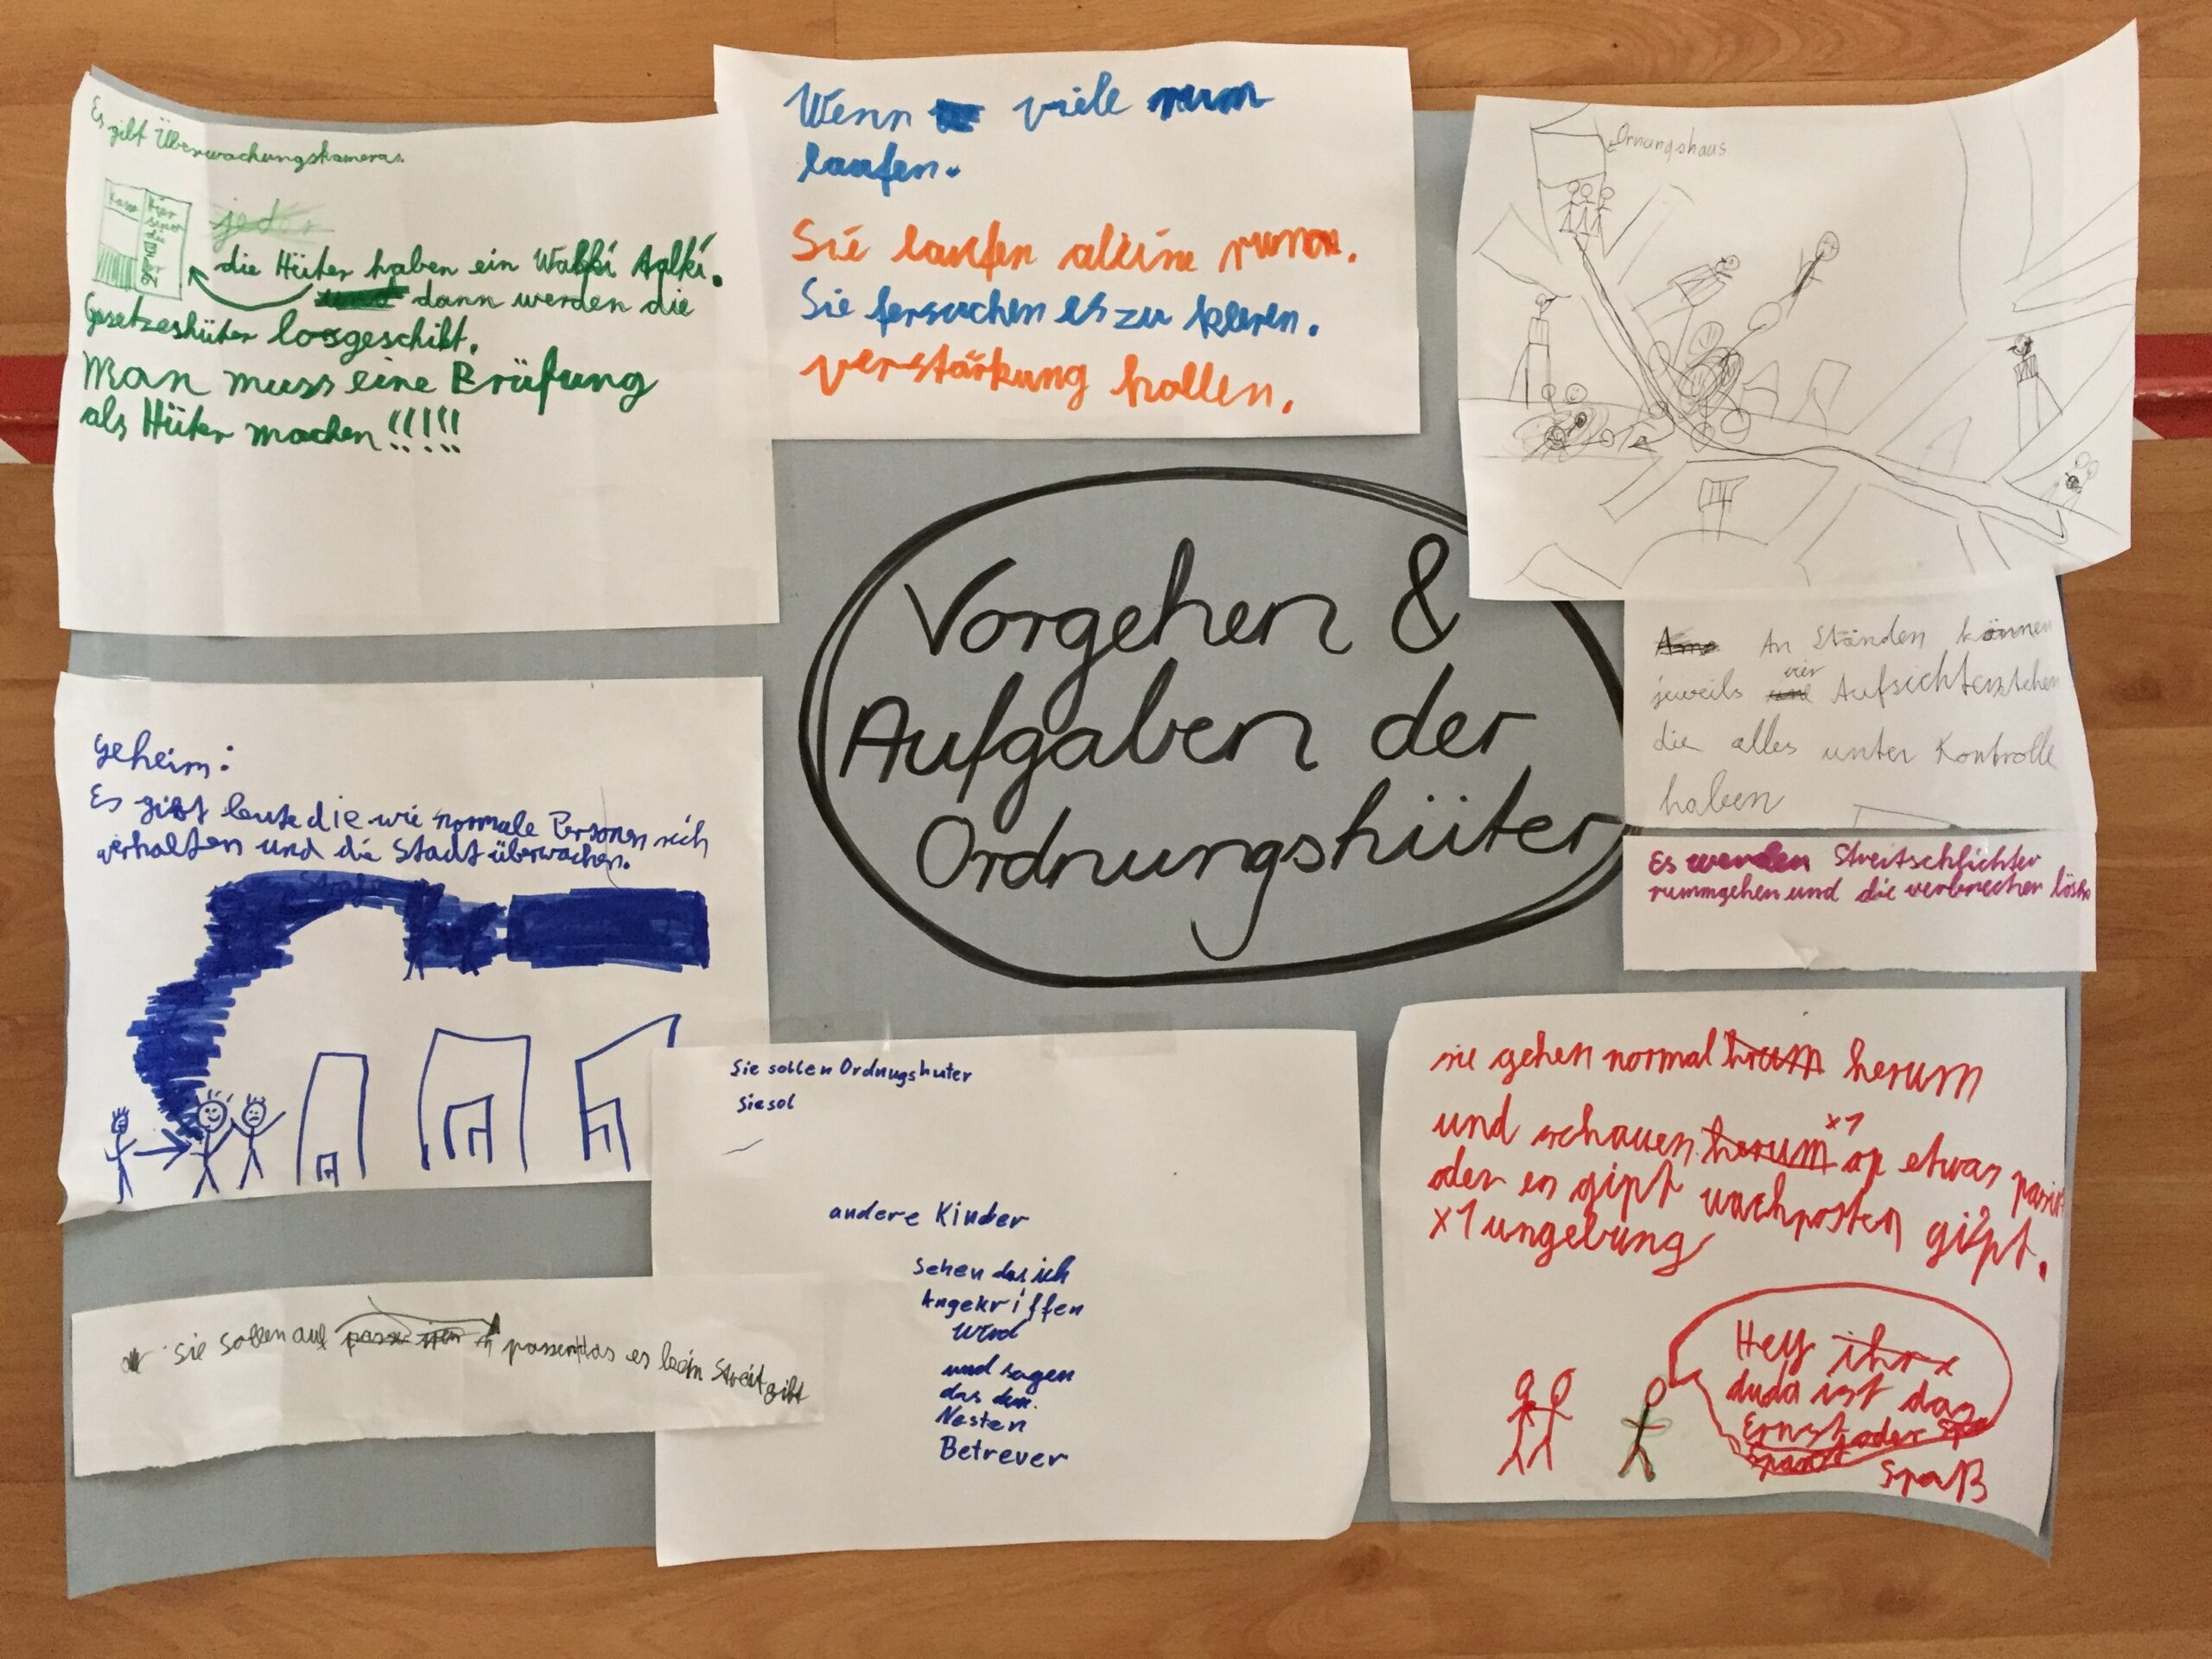 Es gibt Überwachungskameras.
die Hüter haben ein Walki Talki.
dann werden die
Gesetzeshüter losgeschikt.
Man muss eine Brüfung
als Hüter machen!!!!!
Wenn viele rum
laufen.
Sie laufen aleine rum.
Sie fersuchen es zu kleren.
verstärkung hollen.
Ornungshaus
Vorgehen &
Aufgaben der
Ordnungshüter
An Ständen können
jeweils vier Aufsichten stehen
die alles unter Kontrolle
haben
Es werden Streitschlichter
rummgehen und die verbrecher
geheim:
Es gibt leute die wie normale Personen sich
verhalten und die Stadt überwachen.
Sie sollen Ordnugshuter
Sie sol
andere Kinder
Sehen das ich
Angekriffen
wird
und sagen
das dem
Nesten
Betreuer
sie sollen auf passen das es kein Streit gibt
sie gehen normal herum
und schauen x1 op etwas pasirt
oder es gipt wachposten gipt.
x1 umgebung
Hey
duda ist das
Ernst oder
Spaß